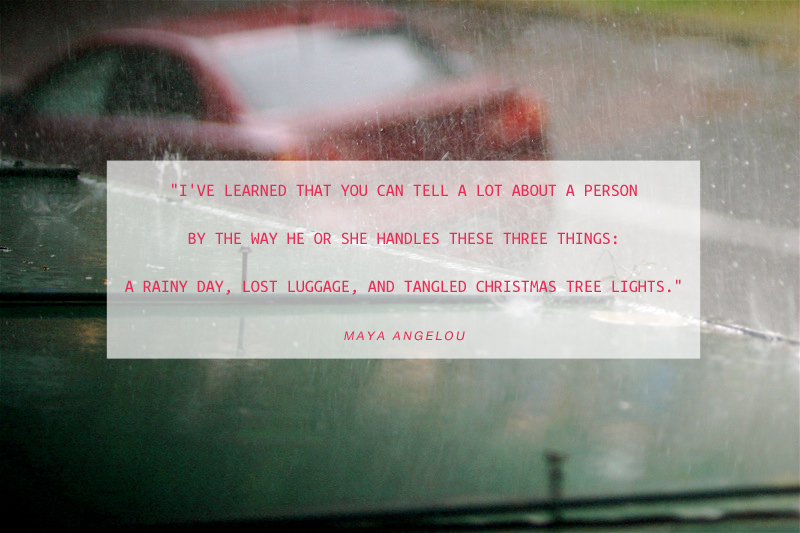 "I'VE LEARNED THAT YOU CAN TELL A LOT ABOUT A PERSON
BY THE WAY HE OR SHE HANDLES THESE THREE THINGS:
A RAINY DAY, LOST LUGGAGE, AND TANGLED CHRISTMAS TREE LIGHTS."
MAYA ANGELOU